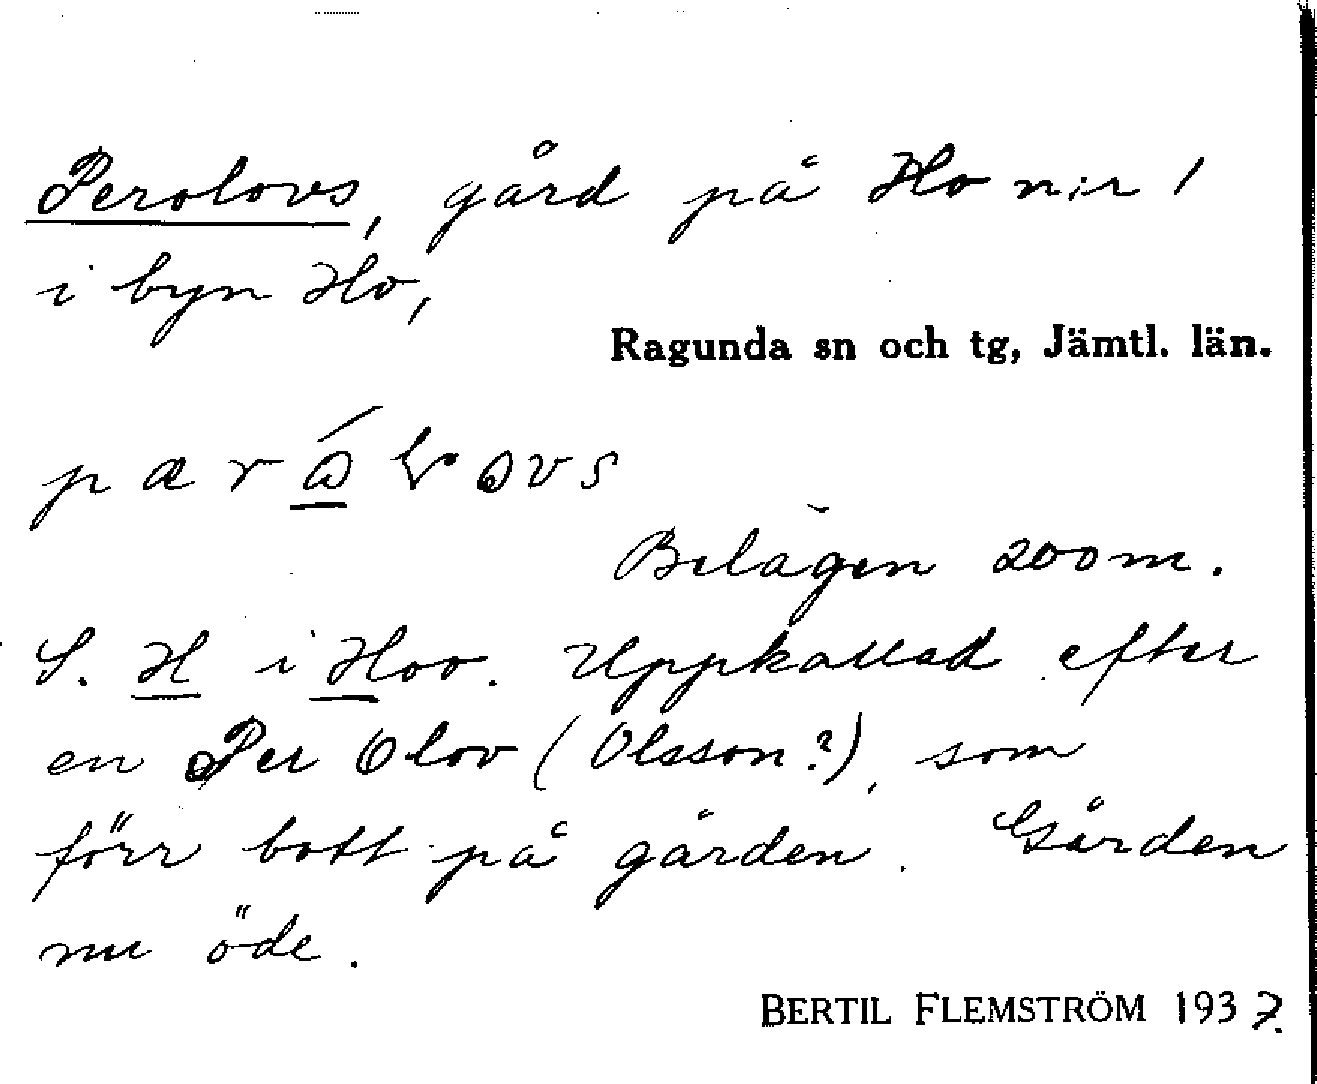 Perolovs, gård på Ho n:r 1
i byn Ho,
Ragunda sn och tg, Jämtl. län.
Belägen 200 m.
S. H i Hoo. Uppkallad efter
en Per Olov (Olsson?), som
förr bott på gården. Gården
nu öde.
BERTIL FLEMSTRÖM 1937.